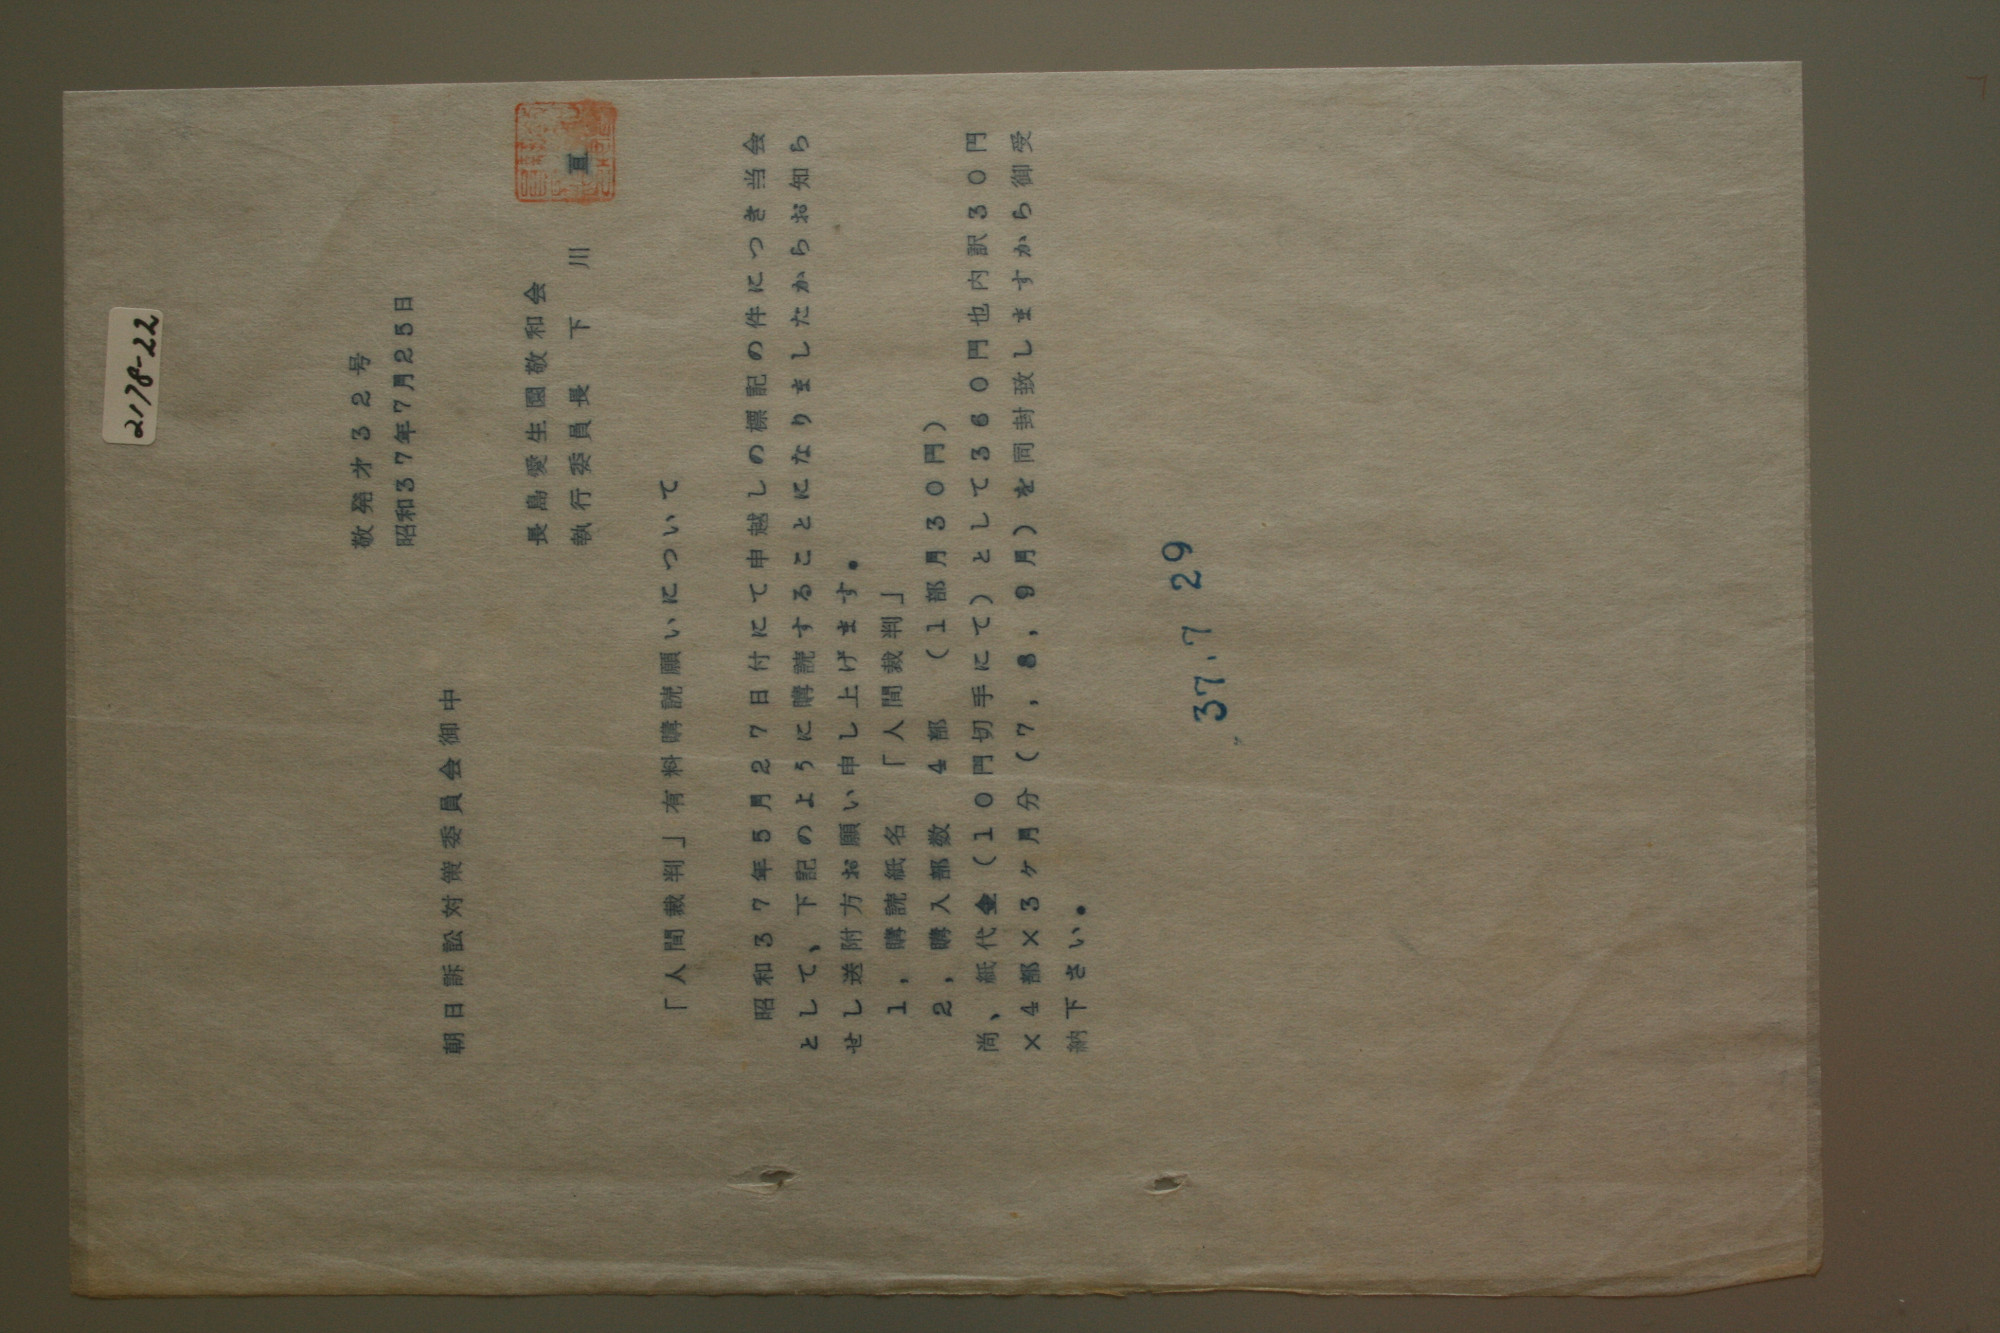 2178-22
敬発才32号
昭和37年7月25日
朝日訴訟対策委員会御中
長島愛生園敬和会
執行委員長 下 川 亘
「人間裁判」有料購読願いについて
昭和37年5月27日付にて申越しの標記の件につき当会
として、下記のように購読することになりましたからお知ら
せし送附方お願い申し上げます。
1,購読紙名 「人間裁判」
2,購入部数 4部 (1部月30円)
尚、紙代金(10円切手にて)として360円也内訳30円
×4部×3ヶ月分(7,8,9月)を同封致しますから御受
納下さい。
37.7 29